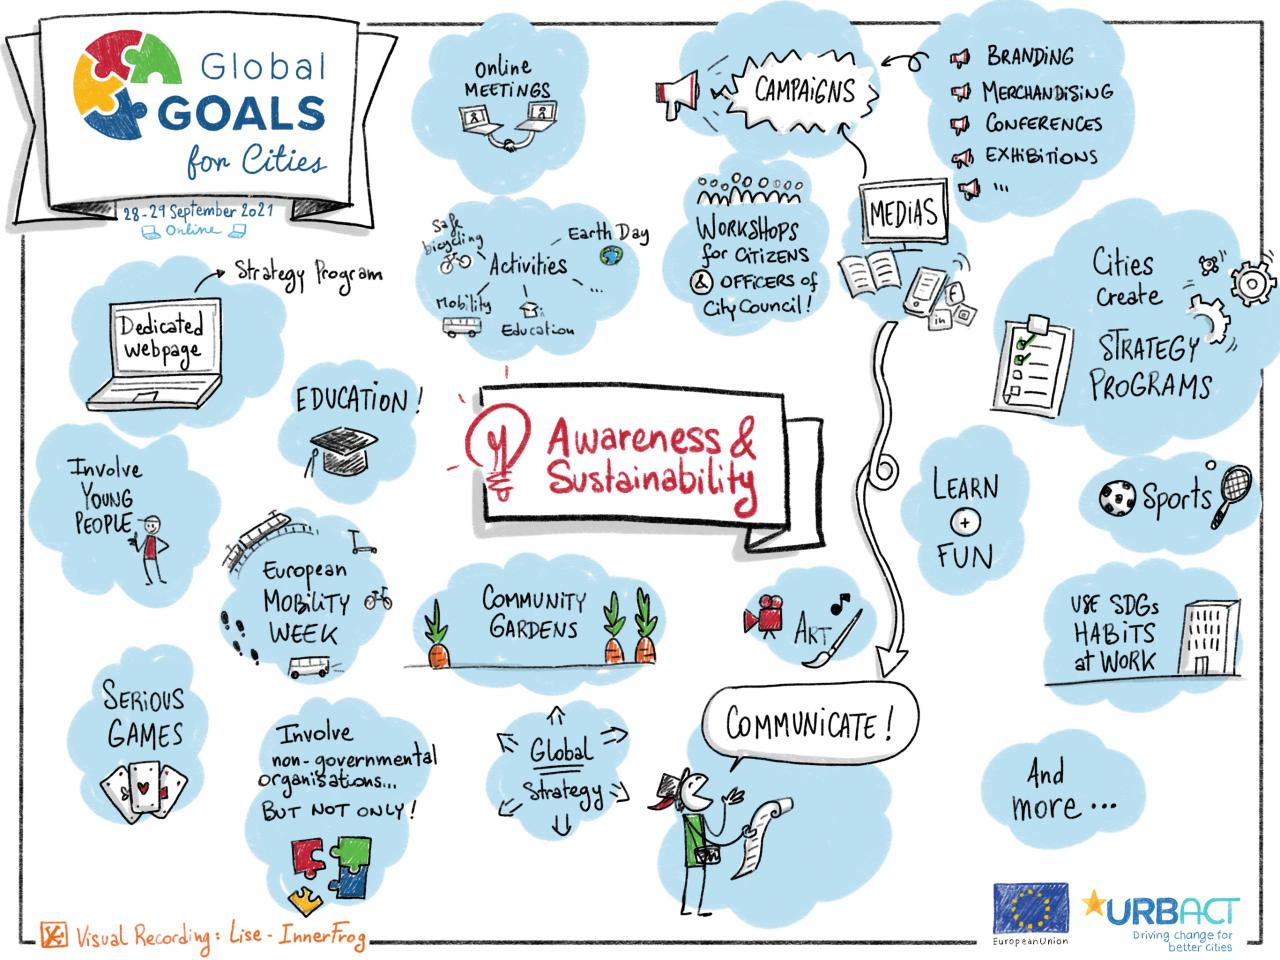 Global
GOALS
for Cities
28-29 September 2021
Online
Online
MEETINGS
CAMPAIGNS
BRANDING
MERCHANDISING
CONFERENCES
EXHIBITIONS
...
Safe
bicycling
Earth Day
Activities
...
Mobility
Education
WORKSHOPS
for CITIZENS
& OFFICERS of
City Council!
MEDIAS
f
in
Cities
Create
STRATEGY
PROGRAMS
Strategy Program
Dedicated
webpage
EDUCATION!
Awareness &
Sustainability
Involve
YOUNG
PEOPLE
European
MOBILITY
WEEK
COMMUNITY
GARDENS
ART
LEARN
+
FUN
Sports
USE SDGs
HABITS
at WORK
SERIOUS
GAMES
Involve
non-governmental
organisations...
BUT NOT ONLY!
Global
Strategy
COMMUNICATE!
And
more ...
Visual Recording: Lise - InnerFrog
European Union
URBACT
Driving change for
better cities